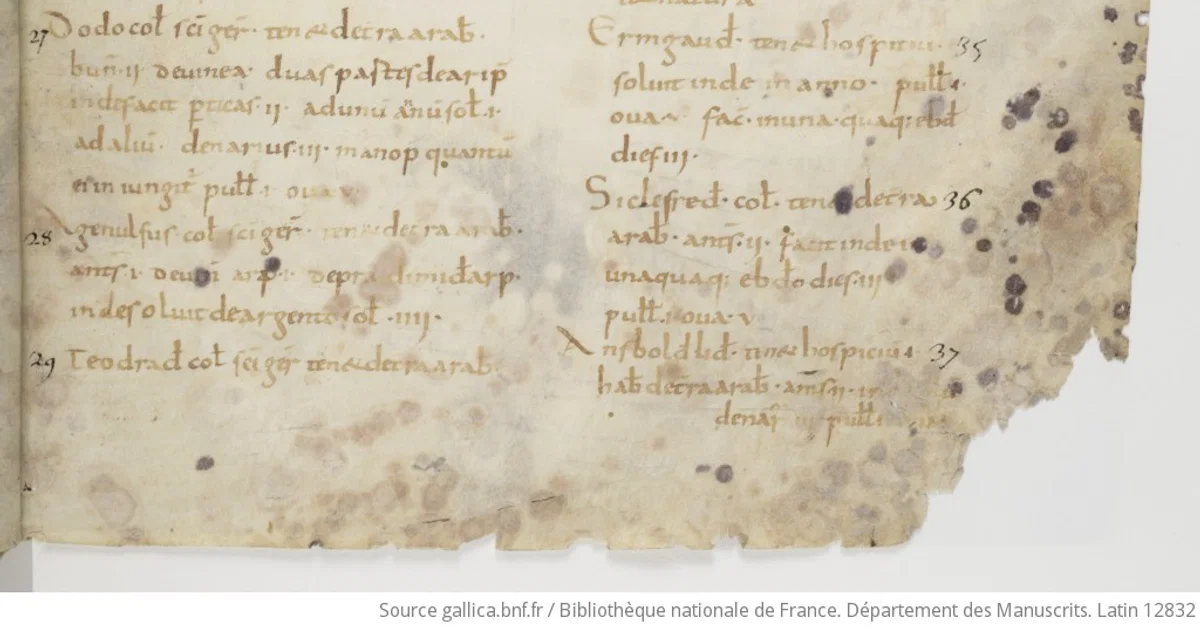 27 Dodo col̄ sc̄i ger̄· ten& de t̄ra arab̄·
bun̄·ii· de vinea· duas partes de arip̄
inde facit p̄ticas·ii· ad unū annū sol̄·i·
ad aliū· denarius·iii· manop̄ quantū
ei iniungit̄ pull̄·i· ova·v·
28 Agenulfus col̄ sc̄i ger̄· ten& de t̄ra arab̄·
ants̄·v· de vini arp̄·i· de pra dimid̄ arp̄·
inde soluit de argento sol̄·iiii·
29 Teodrad̄ col̄ sc̄i ger̄ ten& de t̄ra arab̄
Ermgaud̄· ten& hospitiū· 35
soluit inde in anno· pull̄·i·
ova·v· fac̄· in una·quaq; ebd̄
dies iii·
Siclefred̄· col̄· ten& de t̄ra 36
arab̄· ants̄·ii· facit inde in
unaquaq; ebdo dies·iii
pull̄·i· ova·v
Ansbold lid̄· ten& hospiciū·i· 37
hab̄ de t̄ra arab̄· ants̄·ii·
denar̄ pull̄·i·
Source gallica.bnf.fr / Bibliothèque nationale de France. Département des Manuscrits. Latin 12832